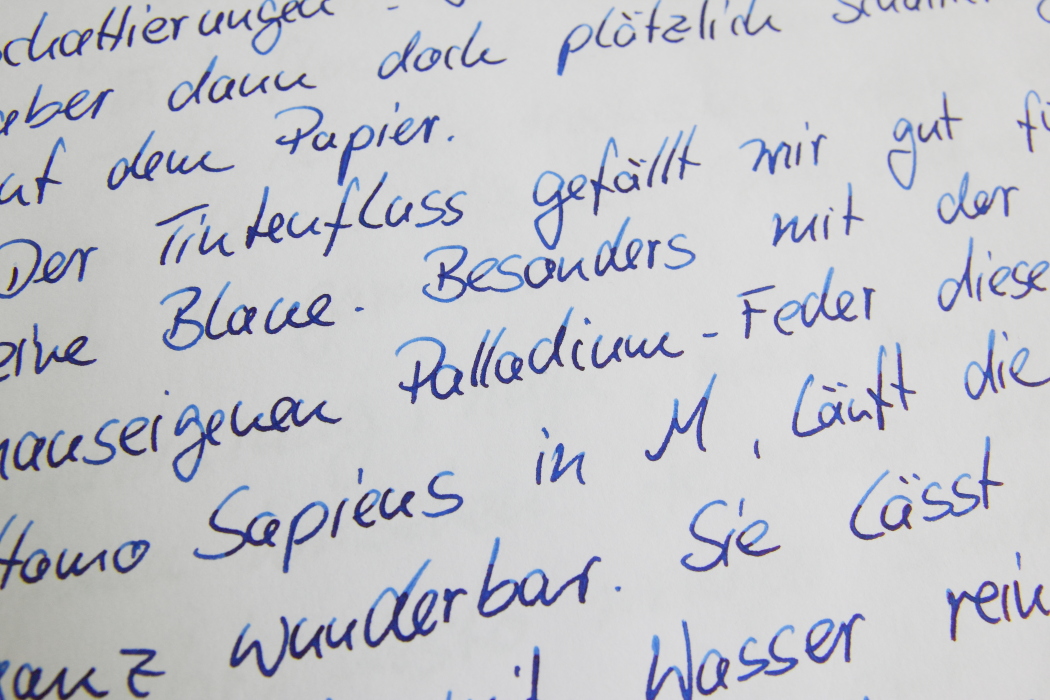 Schattierungen -
aber dann doch plötzlich
auf dem Papier.
Der Tintenfluss gefällt mir gut für
eine Blaue. Besonders mit der
hauseigenen Palladium-Feder dieses
Homo Sapiens in M, läuft die
ganz wunderbar. Sie lässt
mit Wasser rein